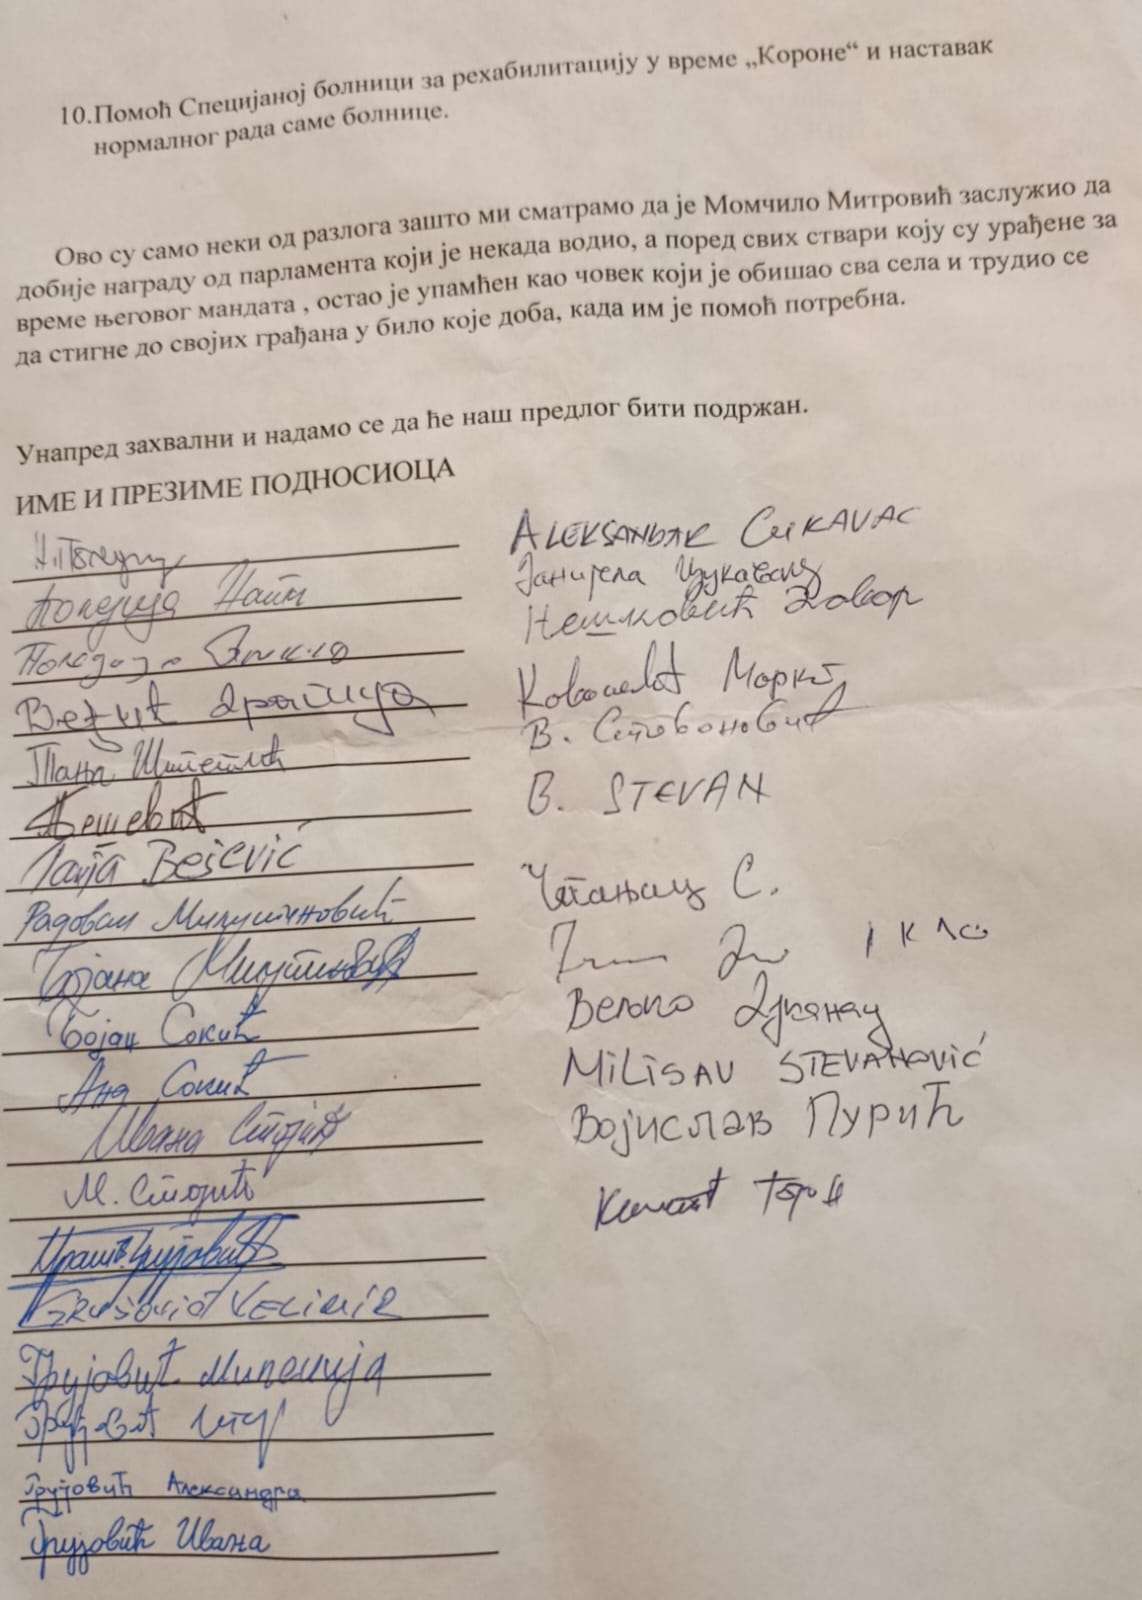 10.Помоћ Специјаној болници за рехабилитацију у време „Короне“ и наставак
нормалног рада саме болнице.
Ово су само неки од разлога зашто ми сматрамо да је Момчило Митровић заслужио да
добије награду од парламента који је некада водио, а поред свих ствари коју су урађене за
време његовог мандата , остао је упамћен као човек који је обишао сва села и трудио се
да стигне до својих грађана у било које доба, када им је помоћ потребна.
Унапред захвални и надамо се да ће наш предлог бити подржан.
ИМЕ И ПРЕЗИМЕ ПОДНОСИОЦА
Тања
Пешевић
Tanja Bešević
Радован Милутиновић
Бојана Милутиновић
Бојан Сокић
Ана Сокић
Ивана Стојић
М. Стојић
VELIMIR
Грујовић Миленија
Грујовић
Грујовић Александра
Грујовић Ивана
ALEKSANDAR CUKAVAC
Данијела Цукавац
Нешковић
Марко
В. Стевановић
B. STEVAN
С.
Вељко
MILISAV STEVANOVIĆ
Војислав Пурић